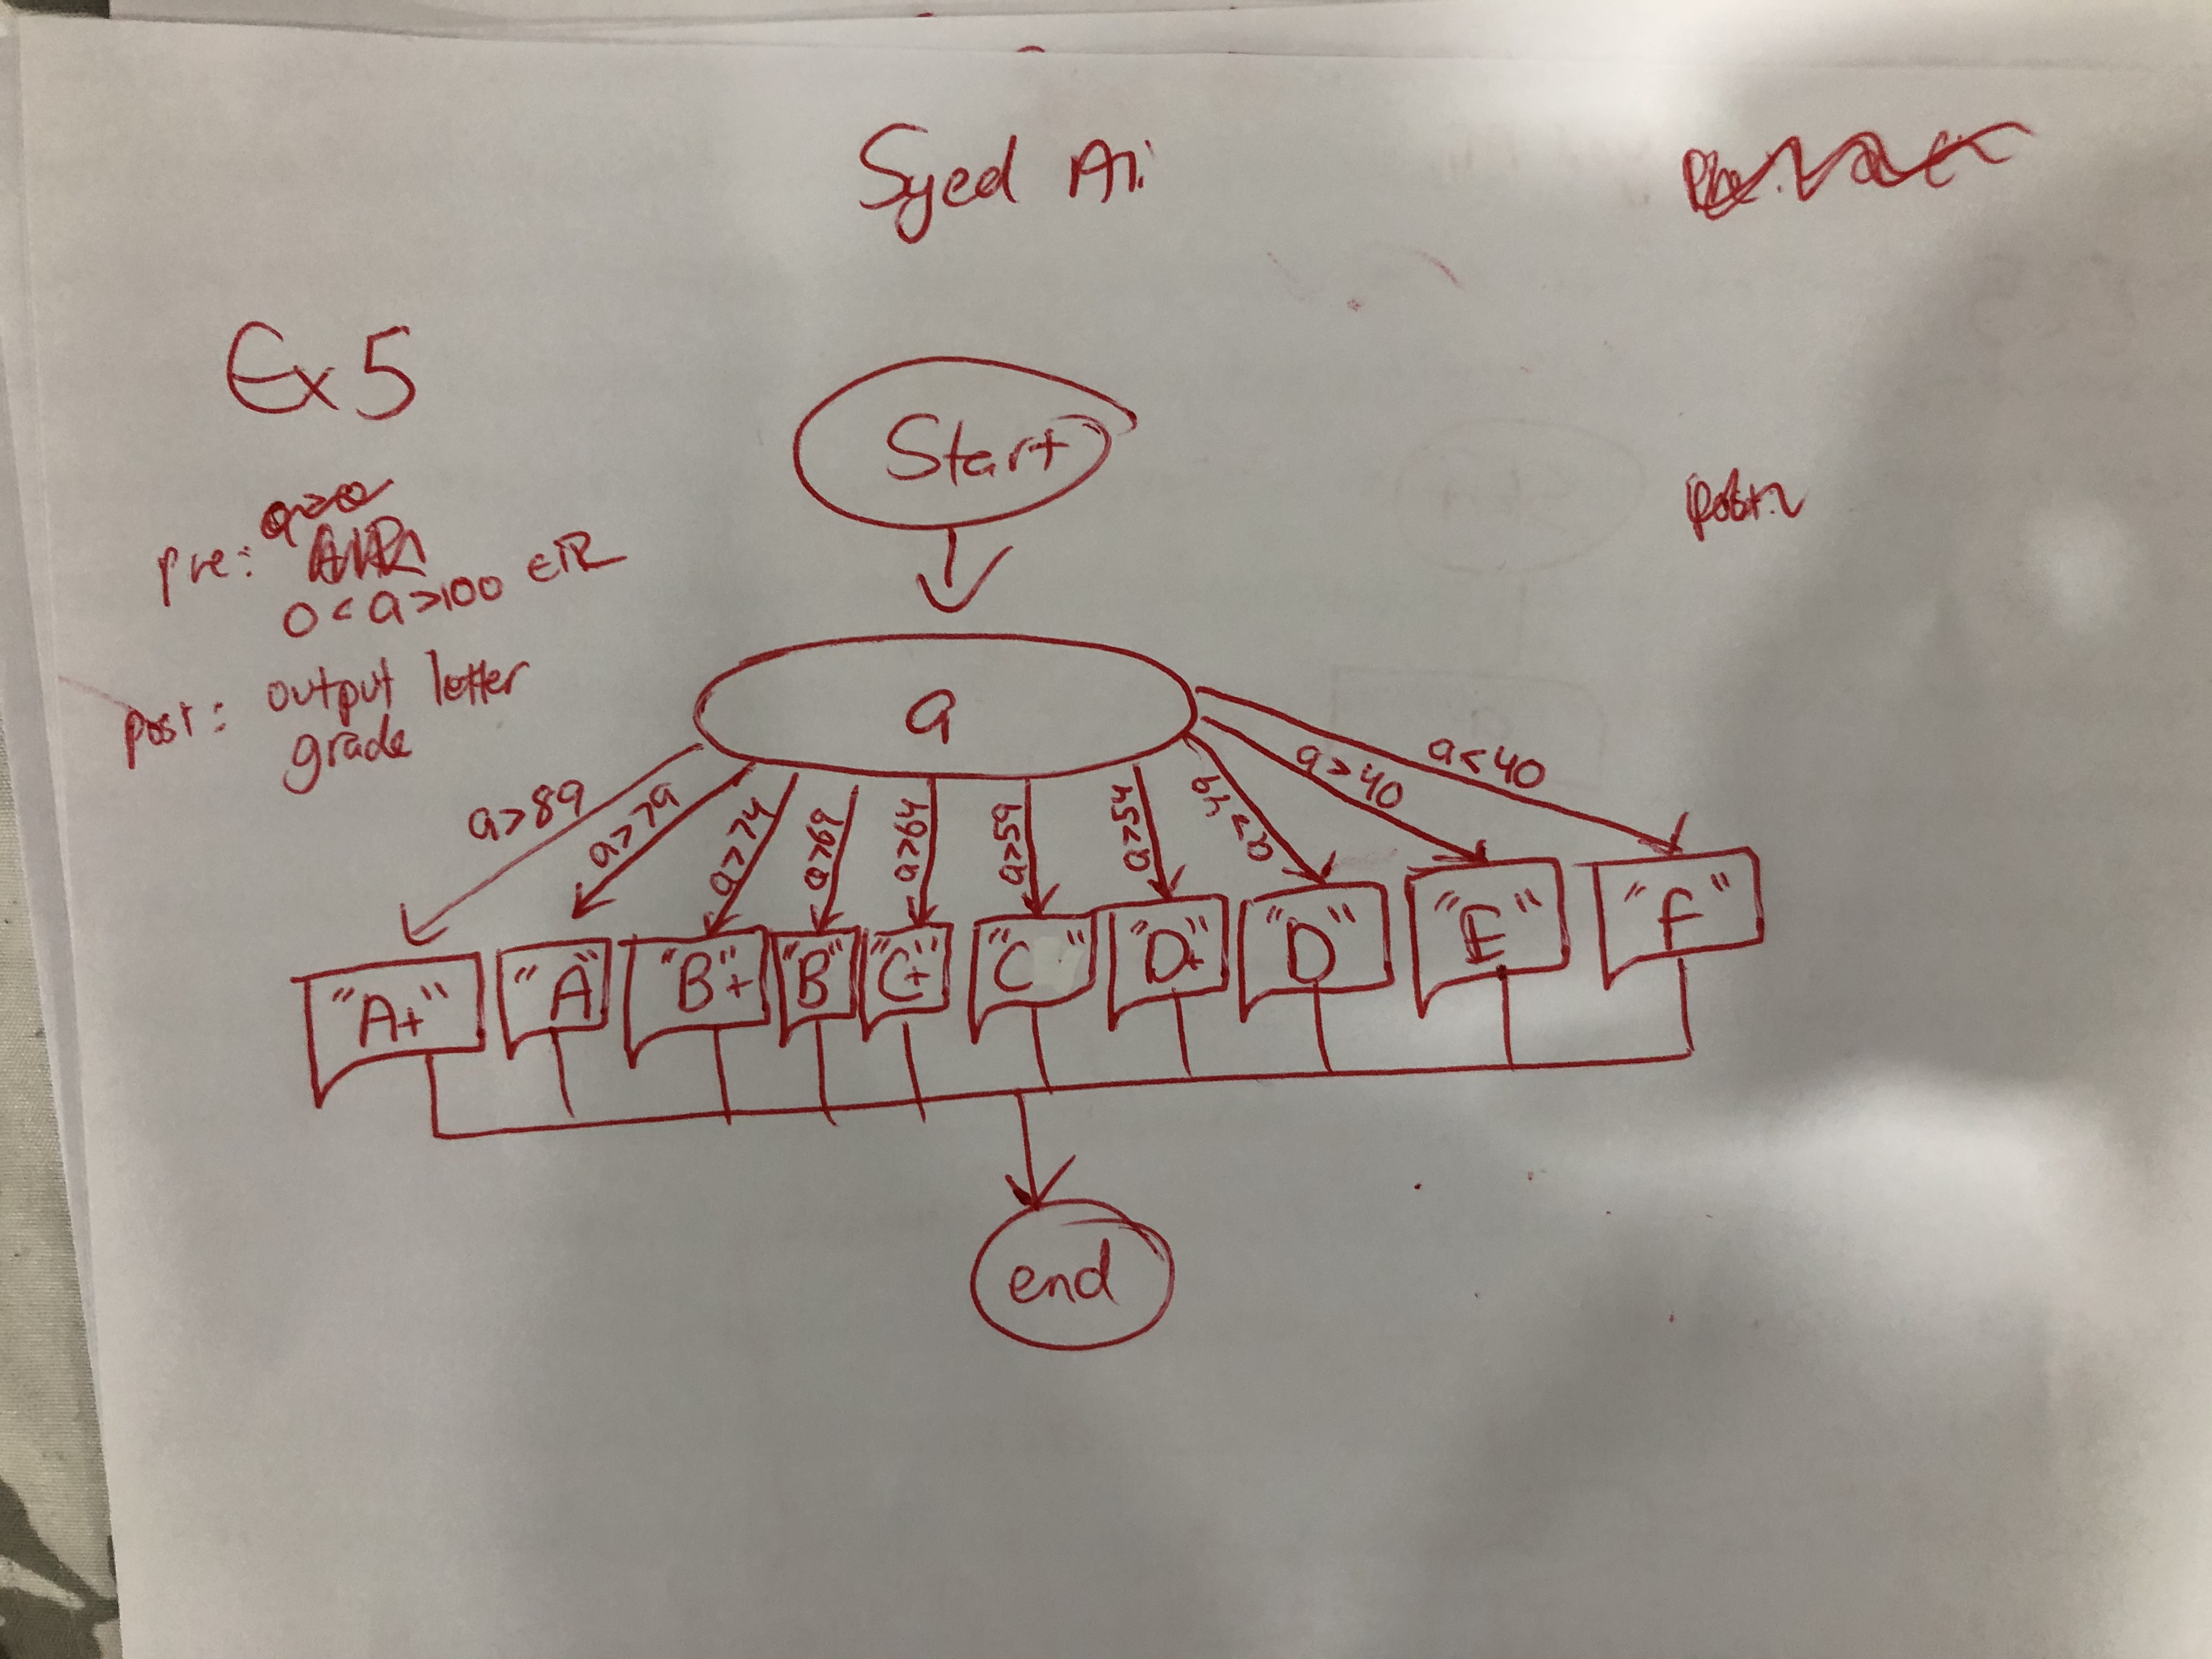 Syed Ali
Ex 5
pre:
0 < a > 100 ∈ℝ
post: output letter
grade
Start
a
a>89
a>79
a>74
a>69
a>64
a>59
a>54
a>49
a>40
a<40
"A+"
"A"
"B+"
"B"
"C+"
"C"
"D+"
"D"
"E"
"F"
end